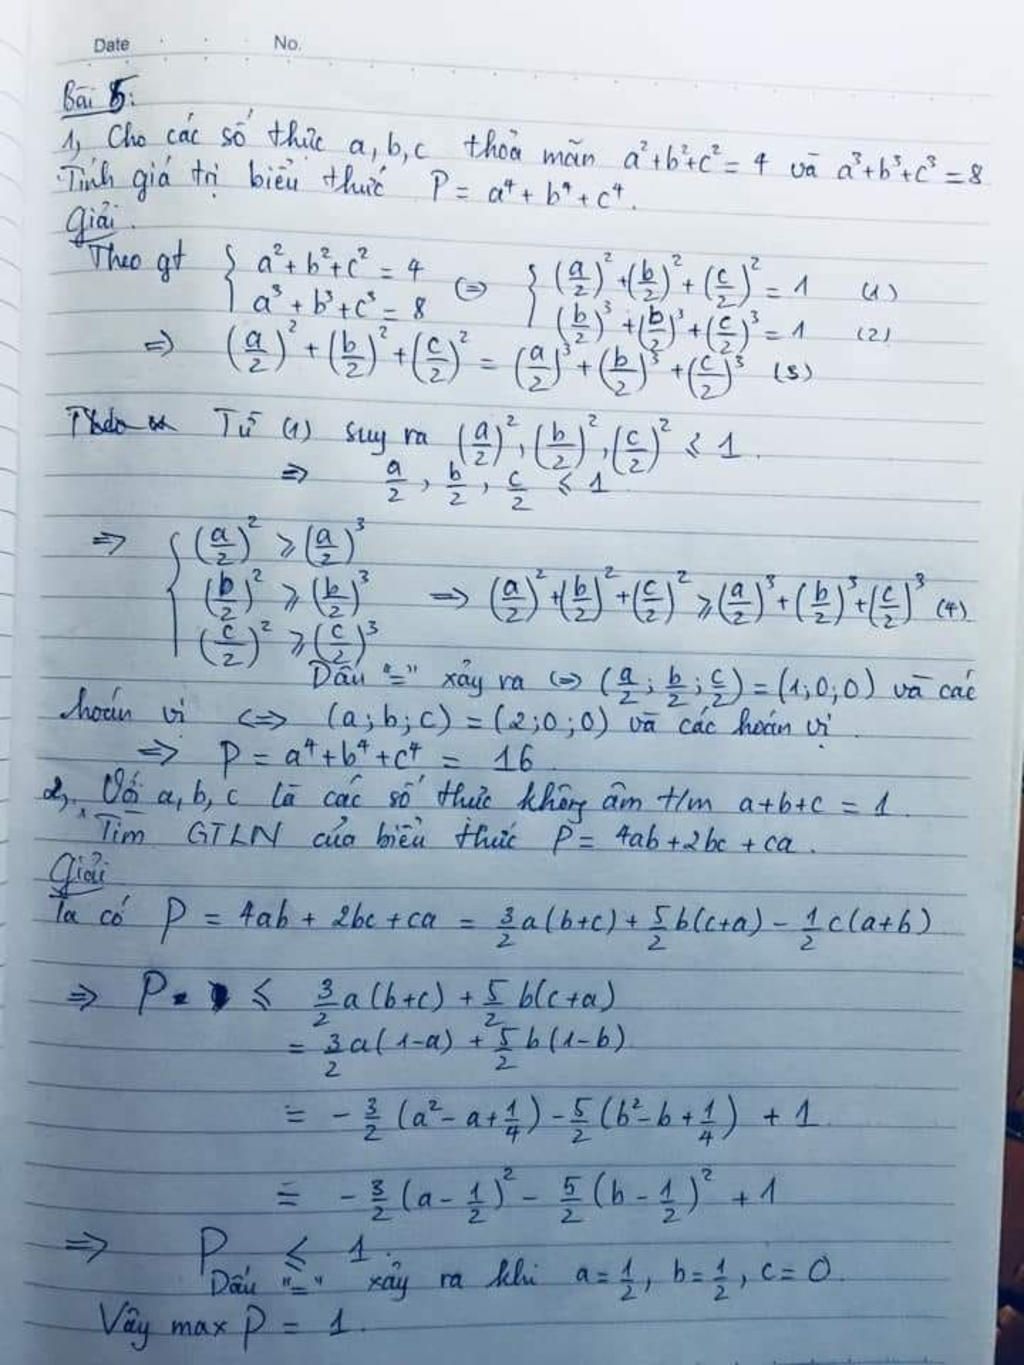 Date No.
Bài 5:
1, Cho các số thức a, b, c thoả mãn a²+b²+c² = 4 và a³+b³+c³ = 8
Tính giá trị biểu thức P = a⁴ + b⁴ + c⁴.
Giải.
Theo gt { a²+b²+c² = 4 ⇔ { (a/2)² + (b/2)² + (c/2)² = 1 (1)
a³ + b³ + c³ = 8 (b/2)³ + (b/2)³ + (c/2)³ = 1 (2)
⇒ (a/2)² + (b/2)² + (c/2)² = (a/2)³ + (b/2)³ + (c/2)³ (3)
Từ (1) suy ra (a/2)², (b/2)², (c/2)² ≤ 1.
⇒ a/2, b/2, c/2 ≤ 1
⇒ { (a/2)² ⩾ (a/2)³
(b/2)² ⩾ (b/2)³ ⇒ (a/2)² + (b/2)² + (c/2)² ⩾ (a/2)³ + (b/2)³ + (c/2)³ (4)
(c/2)² ⩾ (c/2)³
Dấu "=" xảy ra ⇔ (a/2; b/2; c/2) = (1; 0; 0) và các
hoán vị ⇔ (a; b; c) = (2; 0; 0) và các hoán vị.
⇒ P = a⁴+b⁴+c⁴ = 16
2, Với a, b, c là các số thức không âm t/m a+b+c = 1.
Tìm GTLN của biểu thức P = 4ab+2bc + ca.
Giải
Ta có P = 4ab + 2bc + ca = 3/2 a(b+c) + 5/2 b(c+a) - 1/2 c(a+b)
⇒ P ≤ 3/2 a(b+c) + 5/2 b(c+a)
= 3/2 a(1-a) + 5/2 b(1-b)
= - 3/2 (a² - a + 1/4) - 5/2 (b² - b + 1/4) + 1
= - 3/2 (a - 1/2)² - 5/2 (b - 1/2)² + 1
⇒ P ≤ 1.
Dấu "=" xảy ra khi a = 1/2, b = 1/2, c = 0.
Vậy max P = 1.